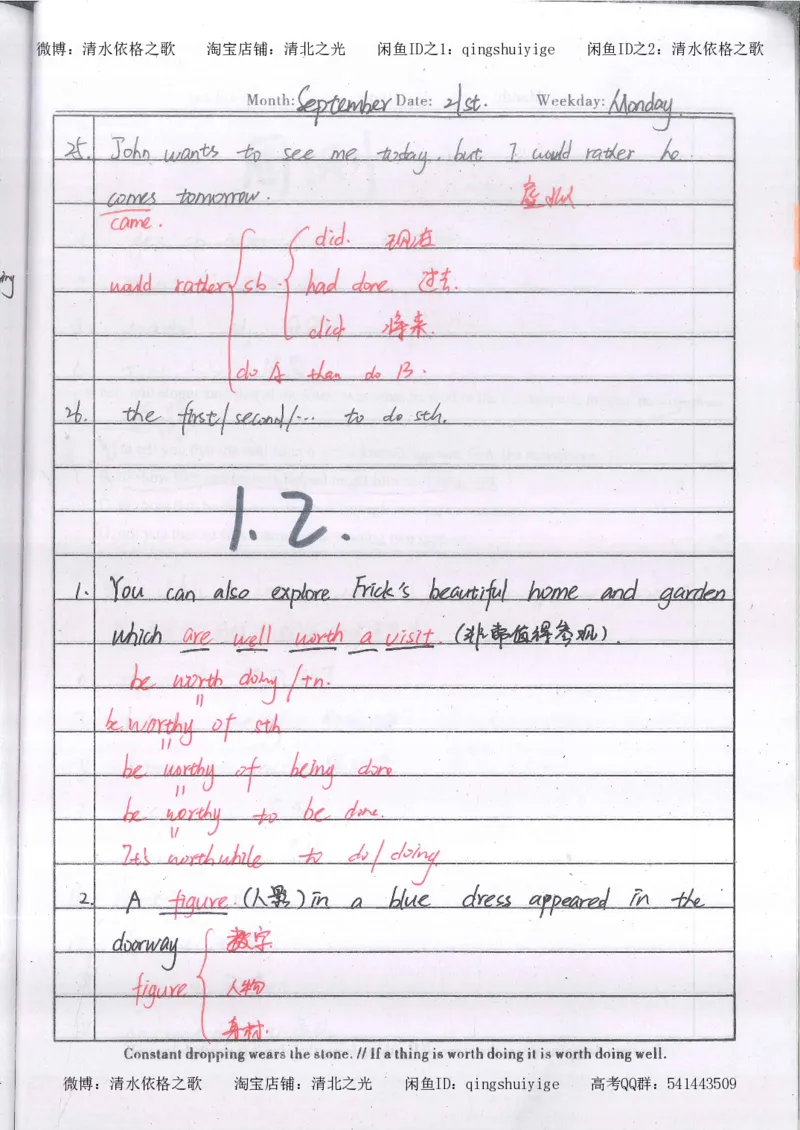 微博：清水依格之歌 淘宝店铺：清北之光 闲鱼ID之1：qingshuiyige 闲鱼ID之2：清水依格之歌
Month: September Date: 21st. Weekday: Monday.
25. John wants to see me today, but I would rather he
comes tomorrow. 虚拟
came.
did. 现在
would rather sb. had done. 过去.
did 将来.
do A than do B.
26. the first/second/... to do sth.
1.2.
1. You can also explore Frick's beautiful home and garden
which are well worth a visit. (非常值得参观).
be worth doing/+n.
=
be worthy of sth
=
be worthy of being done
=
be worthy to be done.
=
It's worthwhile to do/doing
2. A figure (人影) in a blue dress appeared in the
doorway 数字
figure 人物
身材.
Constant dropping wears the stone. // If a thing is worth doing it is worth doing well.
微博：清水依格之歌 淘宝店铺：清北之光 闲鱼ID：qingshuiyige 高考QQ群：541443509